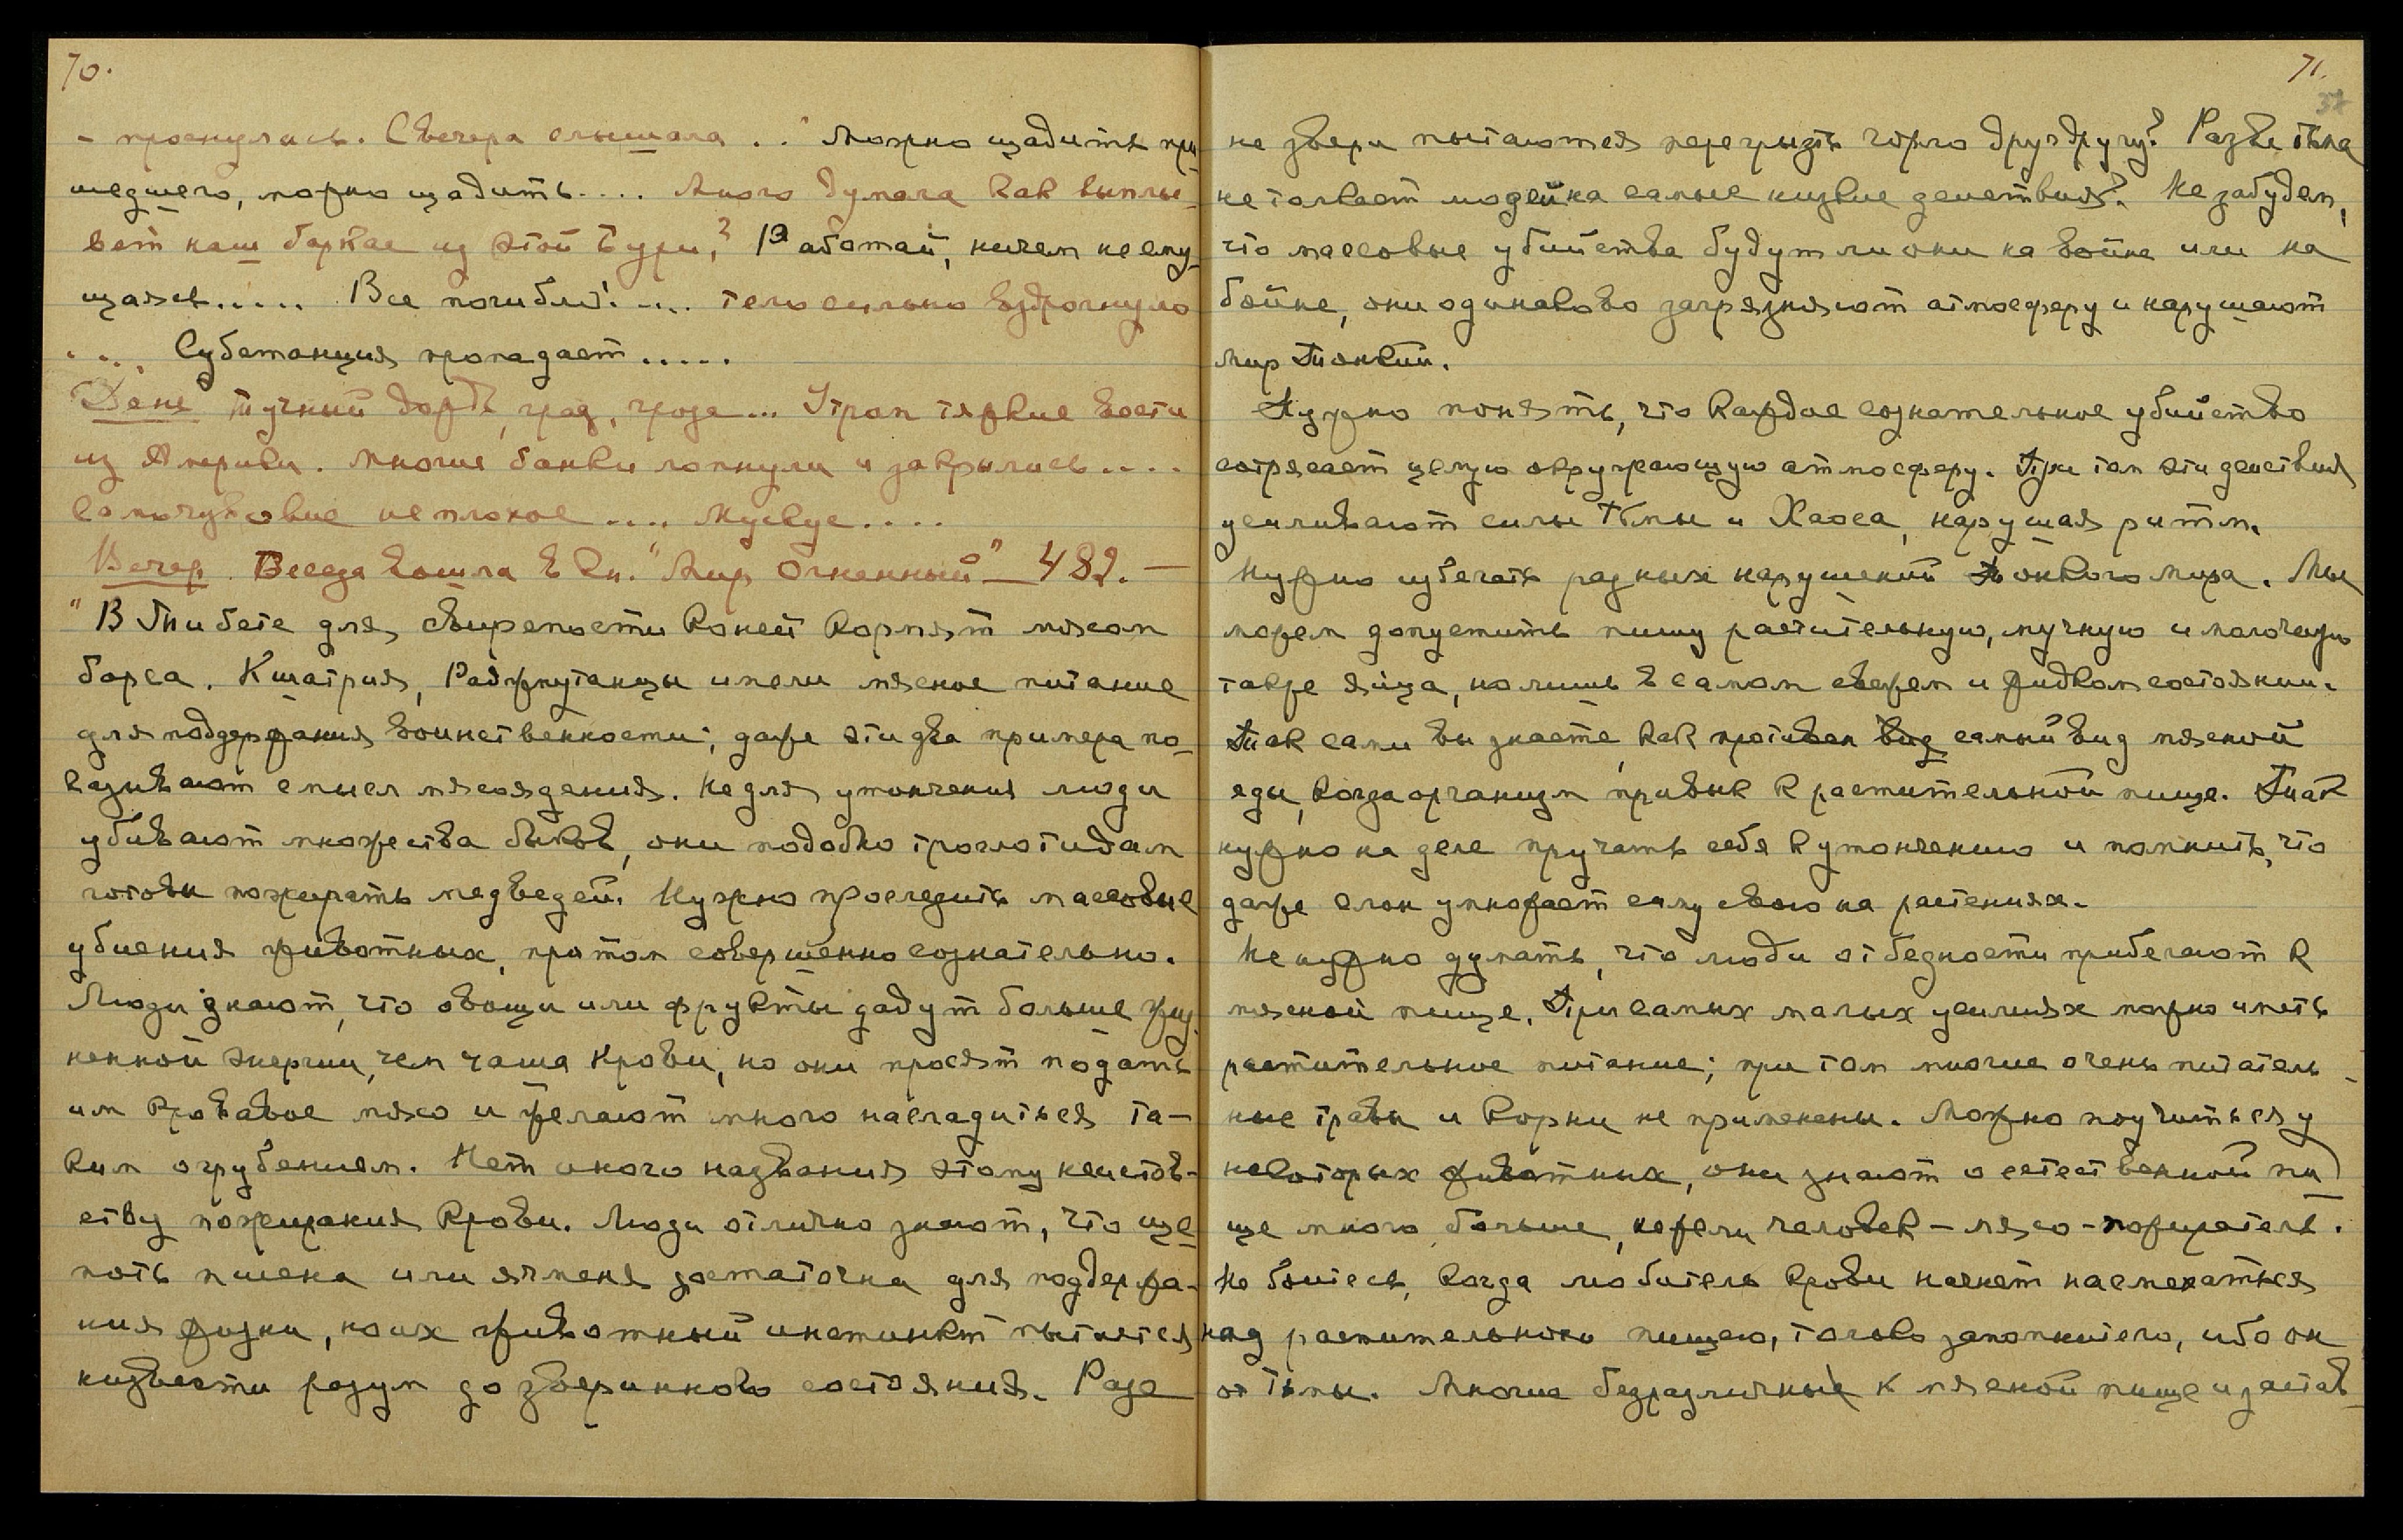 70.
- проснулась. Свечера слышала .. "Можно щадить при
шедшего, можно щадить.... Много думала как выплы-
вет наш баркас из этой бури,? Работай, ничем не сму-
щаясь..... Все погибло!.... тело сильно вздрогнуло
.... Субстанция пропадает.....
День тучный дождь, град, гроза... Утром тяжкие вести
из Америки. Многие банки лопнули и закрылись....
Самочувствие неплохое.... Мускус....
Вечер. Беседа вошла в кн. "Мир Огненный" – 482. –
"В Тибете для свирепости коней кормят мясом
барса. Кшатрия, Раджпутанцы имели мясное питание
для поддержания воинственности; даже эти два примера по-
казывают смысл мясоядения. Не для утончения люди
убивают множества быков, они подобно троглотидам
готовы пожирать медведей. Нужно проследить массовые
убиения животных, притом совершенно сознательно.
Люди знают, что овощи или фрукты дадут больше жиз
ненной энергии, чем чаша крови, но они просят подать
им кровавое мясо и желают много насладиться та-
ким огрубением. Нет иного названия этому неистов-
ству пожирания крови. Люди отлично знают, что ще-
поть пшена или ячменя достаточна для поддержа-
ния жизни, но их животный инстинкт пытается
низвести разум до звериннаво состояния. Разе
71.
37
не звери пытаются перегрызть горло друг другу? Разве тьма
не толкает людей на самые низкие действия? Не забудем,
что массовые убийства будут ли они на войне или на
бойне, они одинаково загрязняют атмосферу и нарушают
мир Тонкий.
Нужно понять, что каждое сознательное убийство
сотрясает целую окружающую атмосферу. При том эти действия
усиливают силы Тьмы и Хаоса, нарушая ритм.
Нужно избегать разных нарушений Тонкого мира. Мы
можем допустить пищу растительную, мучную и молочную
также яйца, но лишь в самом свежем и жидком состоянии.
Так сами вы знаете, как противен вид самый вид мясной
еды, когда организм привык к растительной пище. Так
нужно на деле приучать себя к утончению и помнить, что
даже слон умножает силу свою на растениях.
Не нужно думать, что люди от бедности прибегают к
мясной пище. При самых малых усилиях можно иметь
растительное питание; при том многие очень питатель-
ные травы и корни не применены. Можно поучиться у
некоторых животных, они знают о естественной пи-
ще много больше, нежели человек – мясо-пожиратель.
Не бойтесь, когда любитель крови начнет насмехаться
над растительною пищею, только запомните его, ибо он
от тьмы. Многие безразличны к мясной пище и застав-